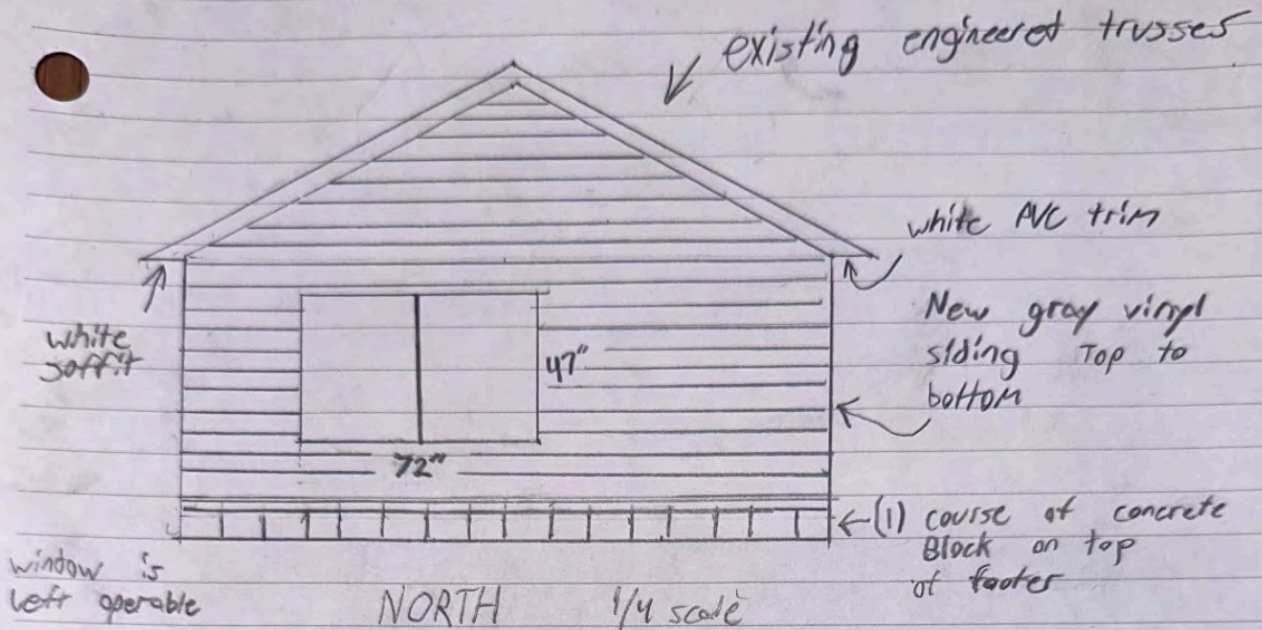 existing engineered trusses
white PVC trim
white
soffit
New gray vinyl
siding Top to
bottom
47"
72"
(1) course of concrete
Block on top
of footer
window is
left operable
NORTH 1/4 scale